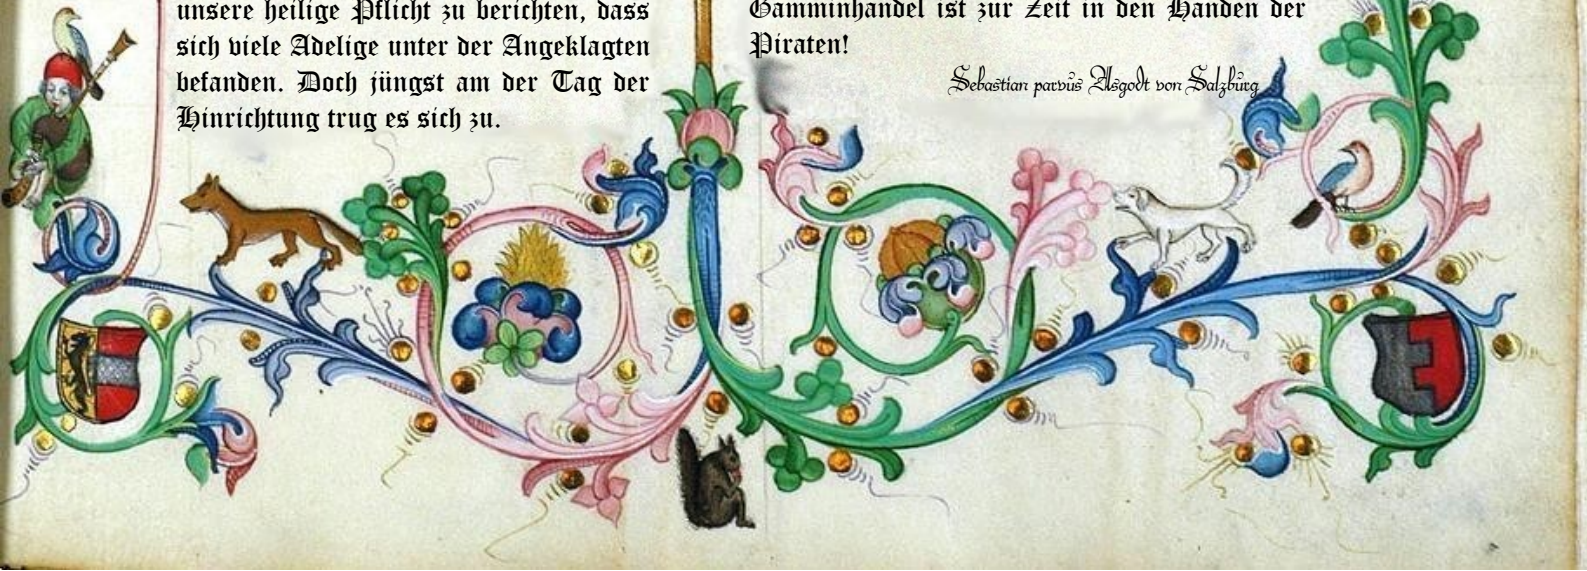 unsere heilige Pflicht zu berichten, dass
sich viele Adelige unter der Angeklagten
befanden. Doch jüngst am der Tag der
Hinrichtung trug es sich zu.
Gamminhandel ist zur Zeit in den Handen der
Piraten!
Sebastian parvus Asgodt von Salzburg